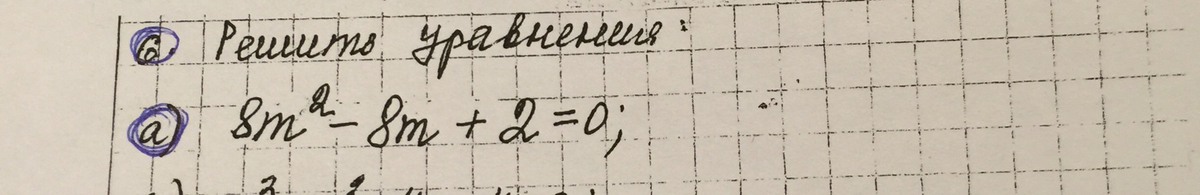 6. Решить уравнения:
а) 8m² - 8m + 2 = 0;